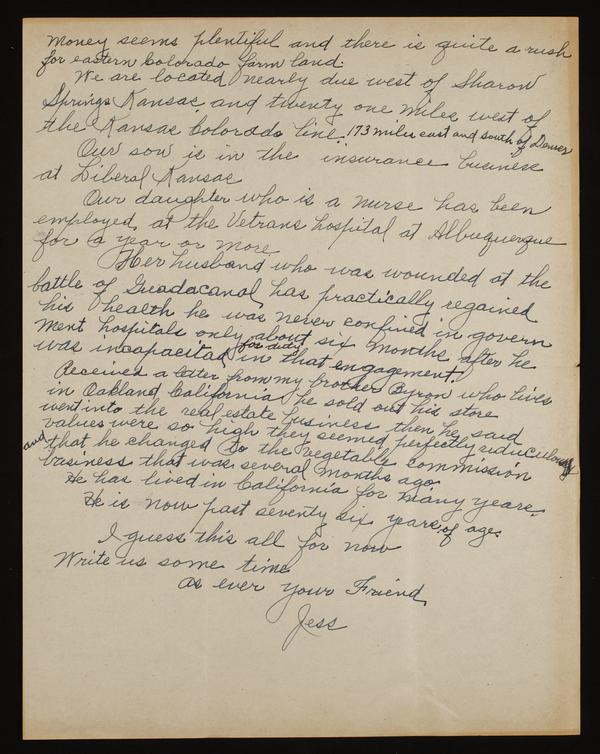 Money seems plentiful and there is quite a rush
for eastern Colorado farm land.
We are located nearly due west of Sharon
Springs Kansas and twenty one miles west of
the Kansas Colorado line 173 miles east and south of Denver
Our son is in the insurance business
at Liberal Kansas
Our daughter who is a nurse has been
employed at the Vetrans hospital at Albuquerque
for a year or more
Her husband who was wounded at the
battle of Greadacanal has practically regained
his health he was never confined in govern
ment hospitals only about six months after he
was incapacitad for duty in that engagement.
Received a letter from my brother Byron who lives
in Oakland California he sold out his store
went into the real estate business then he said
values were so high they seemed perfectly riduculously
and that he changed to the vegetable commission
business that was several months ago
He has lived in California for many years.
He is now past seventy six years of age.
I guess this all for now
Write us some time
as ever your Friend
Jess